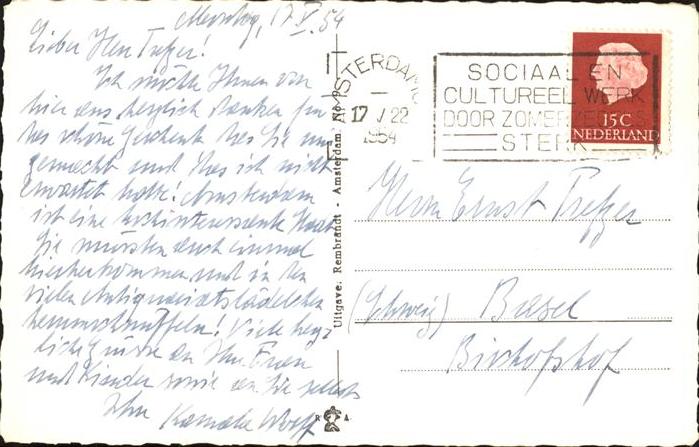 Montag, 17. V. 54
Lieber Herr Trefzer!
Ich möchte Ihnen von
hier aus herzlich danken für
das schöne Geschenk das Sie mir
gemacht und das ich nicht
erwartet hatte! Amsterdam
ist eine hochinteressante Stadt
Sie müssten auch einmal
hierherkommen und in den
vielen Antiquariatslädelchen
herumschnuffeln! Viele herz-
liche Grüsse an Ihre Frau
und Kinder sowie an Sie selbst
Ihr Wolff
Uitgave. Rembrandt - Amsterdam No
R A
AMSTERDAM
17 V 22
1954
SOCIAAL EN
CULTUREEL WERK
DOOR ZOMERZEGELS
STERK
15 C
NEDERLAND
Herrn Ernst Trefzer
(Schweiz) Basel
Bischofshof